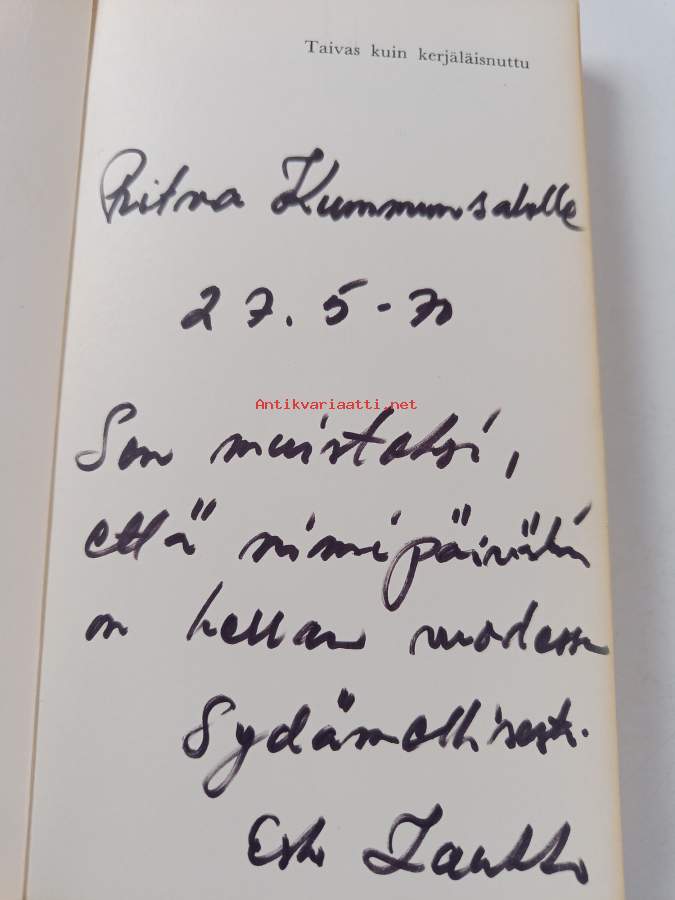 Taivas kuin kerjäläisnuttu
Ritva Kummunsalolle
27.5-70
Antikvariaatti.net
Sen muistoksi,
että nimipäivätkin
on kerran vuodessa
Sydämellisesti.